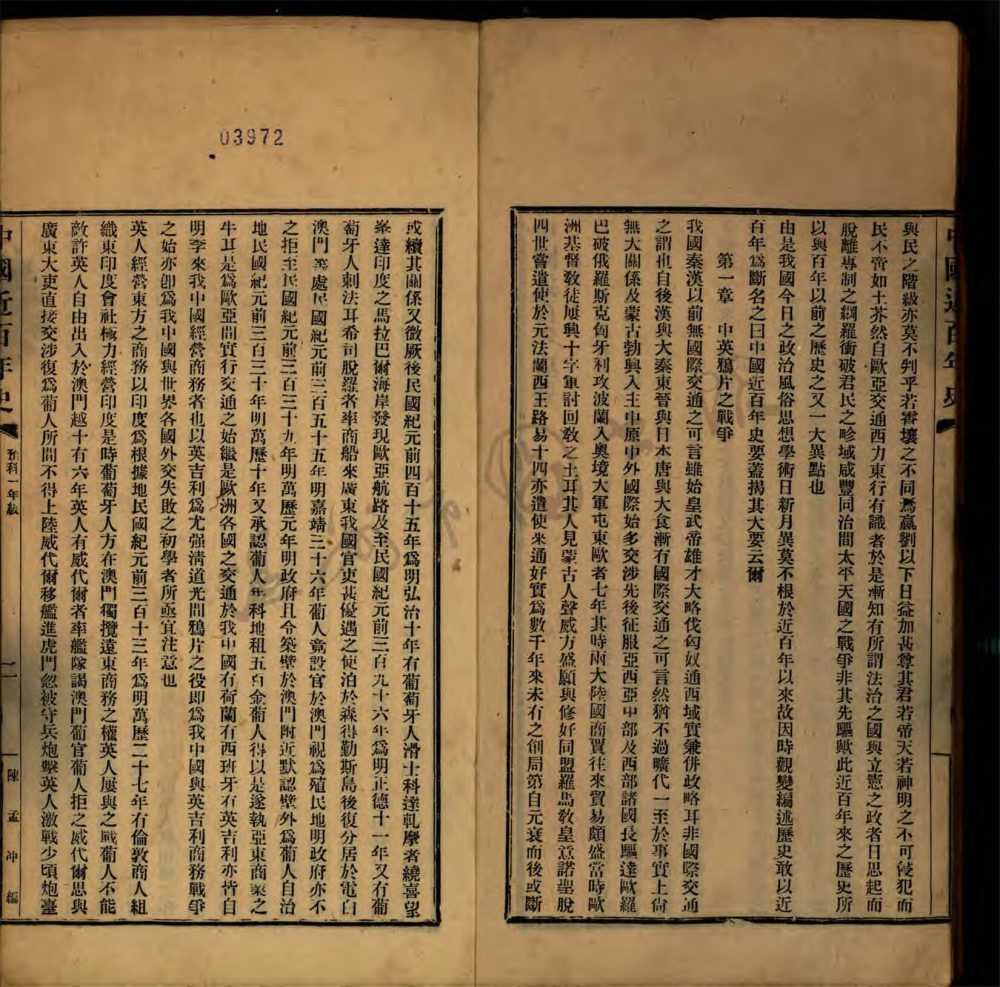 中國近百年史
與民之階級亦莫不判乎若霄壤之不同焉嬴劉以下日益加甚尊其君若帝天若神明之不可侵犯而
民不啻如土芥然自歐亞交通西力東行有識者於是漸知有所謂法治之國與立憲之政者日思起而
脫離專制之綱羅衝破君民之畛域咸豐同治間太平天國之戰爭非其先驅歟此近百年來之歷史所
以與百年以前之歷史之又一大異點也
由是我國今日之政治風俗思想學術日新月異莫不根於近百年以來故因時觀變編述歷史敢以近
百年為斷名之曰中國近百年史要蓋揭其大要云爾
第一章 中英鴉片之戰爭
我國秦漢以前無國際交通之可言雖始皇武帝雄才大略伐匈奴通西域實兼併政略耳非國際交通
之謂也自後漢與大秦東晉與日本唐與大食漸有國際交通之可言然猶不過曠代一至於事實上尙
無大關係及蒙古勃興入主中原中外國際始多交涉先後征服亞西亞中部及西部諸國長驅達歐羅
巴破俄羅斯克匈牙利攻波蘭入奧境大軍屯東歐者七年其時兩大陸國商賈往來貿易頗盛當時歐
洲基督敎徒屢興十字軍討回敎之土耳其人見蒙古人聲威方盛願與修好同盟羅馬敎皇意諾聖脫
四世嘗遣使於元法蘭西王路易十四亦遣使來通好實為數千年來未有之創局第自元衰而後或斷
03972
或續其關係又微厥後民國紀元前四百十五年為明弘治十年有葡萄牙人滑士科達軋摩者繞喜望
峯達印度之馬拉巴爾海岸發現歐亞航路及至民國紀元前三百九十六年為明正德十一年又有葡
萄牙人刺法耳希司脫羅者率商船來廣東我國官吏甚優遇之使泊於森得勤斯島後復分居於電白
澳門等處民國紀元前三百五十五年明嘉靖三十六年葡人竟設官於澳門視為殖民地明政府亦不
之拒至民國紀元前三百三十九年明萬歷元年明政府且令築壁於澳門附近默認壁外為葡人自治
地民國紀元前三百三十年明萬歷十年又承認葡人年科地租五百金葡人得以是遂執亞東商業之
牛耳是為歐亞間實行交通之始繼是歐洲各國之交通於我中國有荷蘭有西班牙有英吉利亦皆自
明季來我中國經營商務者也以英吉利為尤强清道光間鴉片之役即為我中國與英吉利商務戰爭
之始亦卽為我中國與世界各國外交失敗之初學者所亟宜注意也
英人經營東方之商務以印度為根據地民國紀元前三百十三年為明萬歷二十七年有倫敦商人組
織東印度會社極力經營印度是時葡萄牙人方在澳門獨攬遠東商務之權英人屢與之戰葡人不能
敵許英人自由出入於澳門越十有六年英人有威代爾者率艦隊謁澳門葡官葡人拒之威代爾思與
廣東大吏直接交涉復為葡人所間不得上陸威代爾移艦進虎門忽被守兵炮擊英人激戰少頃炮臺
中國近百年史 預科一年級 二 陳孟冲編